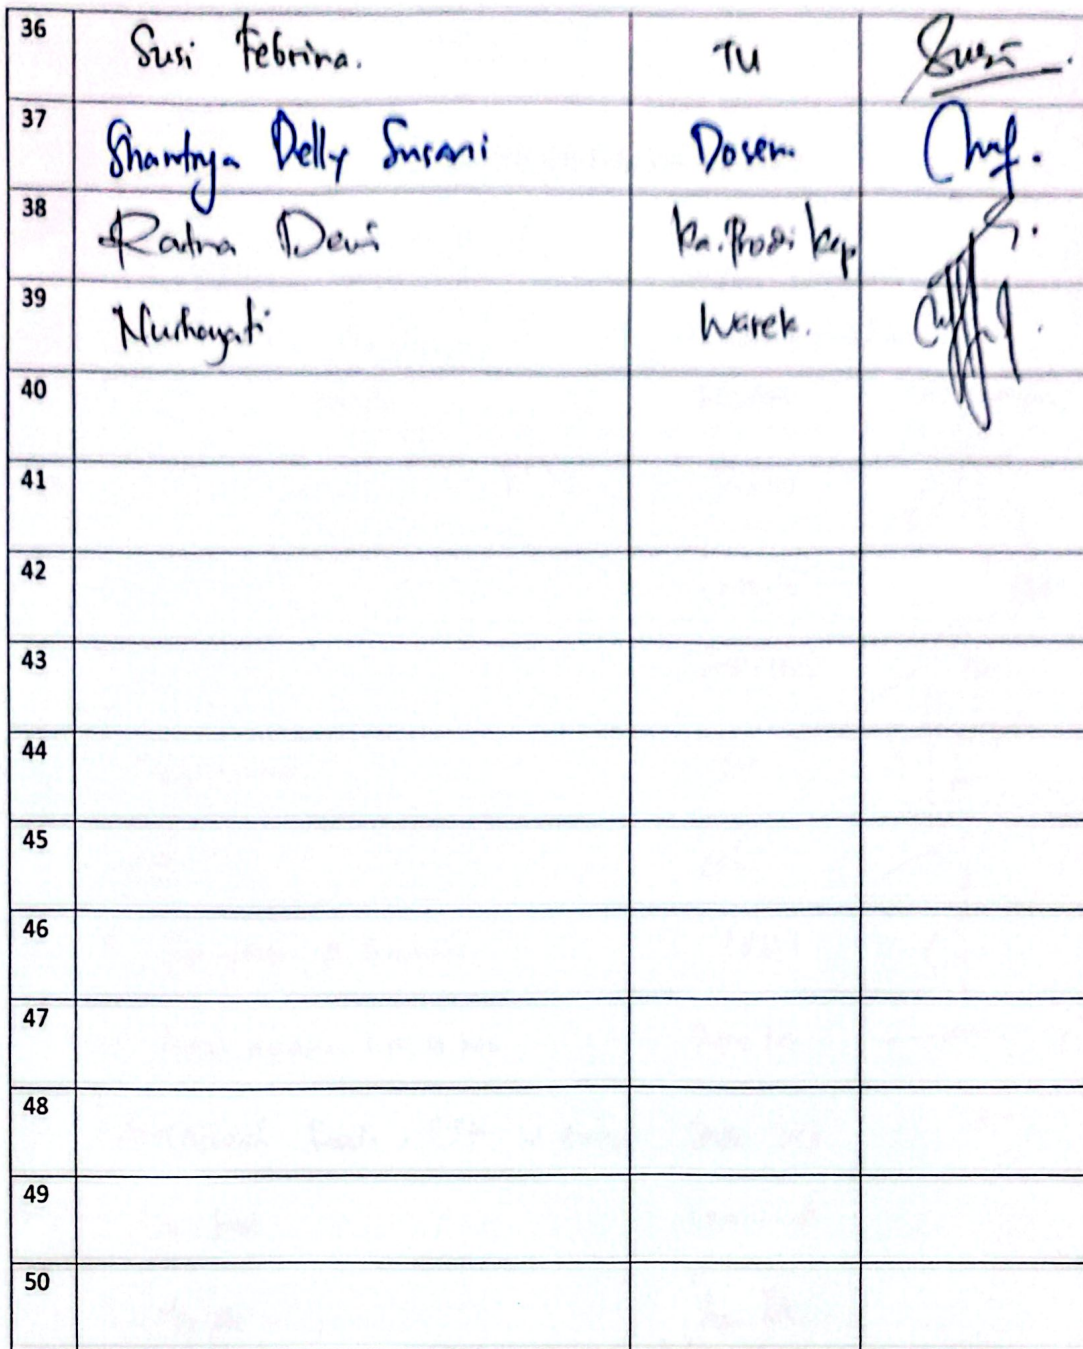 36 Susi Febrina. TU Susi
37 Shantrya Delly Susani Dosen
38 Ratna Dewi Ka.Prodi Kep.
39 Nurhayati Warek.
40
41
42
43
44
45
46
47
48
49
50